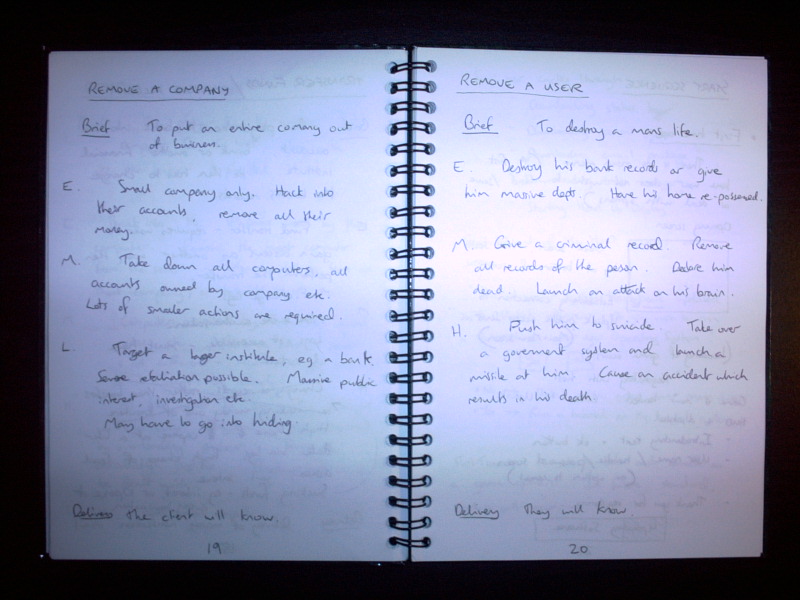 REMOVE A COMPANY
Brief To put an entire comany out
of business.
E. Small company only. Hack into
their accounts, remove all their
money.
M. Take down all computers, all
accounts owned by company etc.
Lots of smaller actions are required.
L. Target a larger institute, eg a bank.
Some retaliation possible. Massive public
interest investigation etc.
May have to go into hiding
Delivery the client will know.
19
REMOVE A USER
Brief To destroy a mans life.
E. Destroy his bank records or give
him massive depts. Have his home re-possessed.
M. Give a criminal record. Remove
all records of the person. Declare him
dead. Launch an attack on his brain.
H. Push him to suicide. Take over
a goverment system and launch a
missile at him. Cause an accident which
results in his death
Delivery They will know.
20